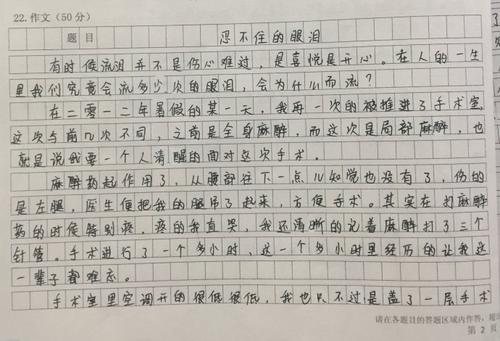 22.作文(50分)
题目 忍不住的眼泪
有时候流泪并不是伤心难过,是喜悦是开心。在人的一生
里我们究竟会流多少次的眼泪,会为什么而流?
在二零一二年暑假的某一天,我再一次的被推进了手术室
这次与前几次不同,之前是全身麻醉,而这次是局部麻醉,也
就是说我要一个人清醒的面对这次手术。
麻醉药起作用了,从腰部往下一点儿知觉也没有了,伤的
是左腿,医生便把我的腿吊了起来,方便手术。其实在打麻醉
药的时候特别疼,疼的我直哭,我还清晰的记着麻醉打了三个
针管。手术进行了一个多小时,这一个多小时里经历的让我这
一辈子都难忘。
手术室里空调开的很低很低,我也只不过是盖了一层手术
请在各题目的答题区域内作答,超
第2页